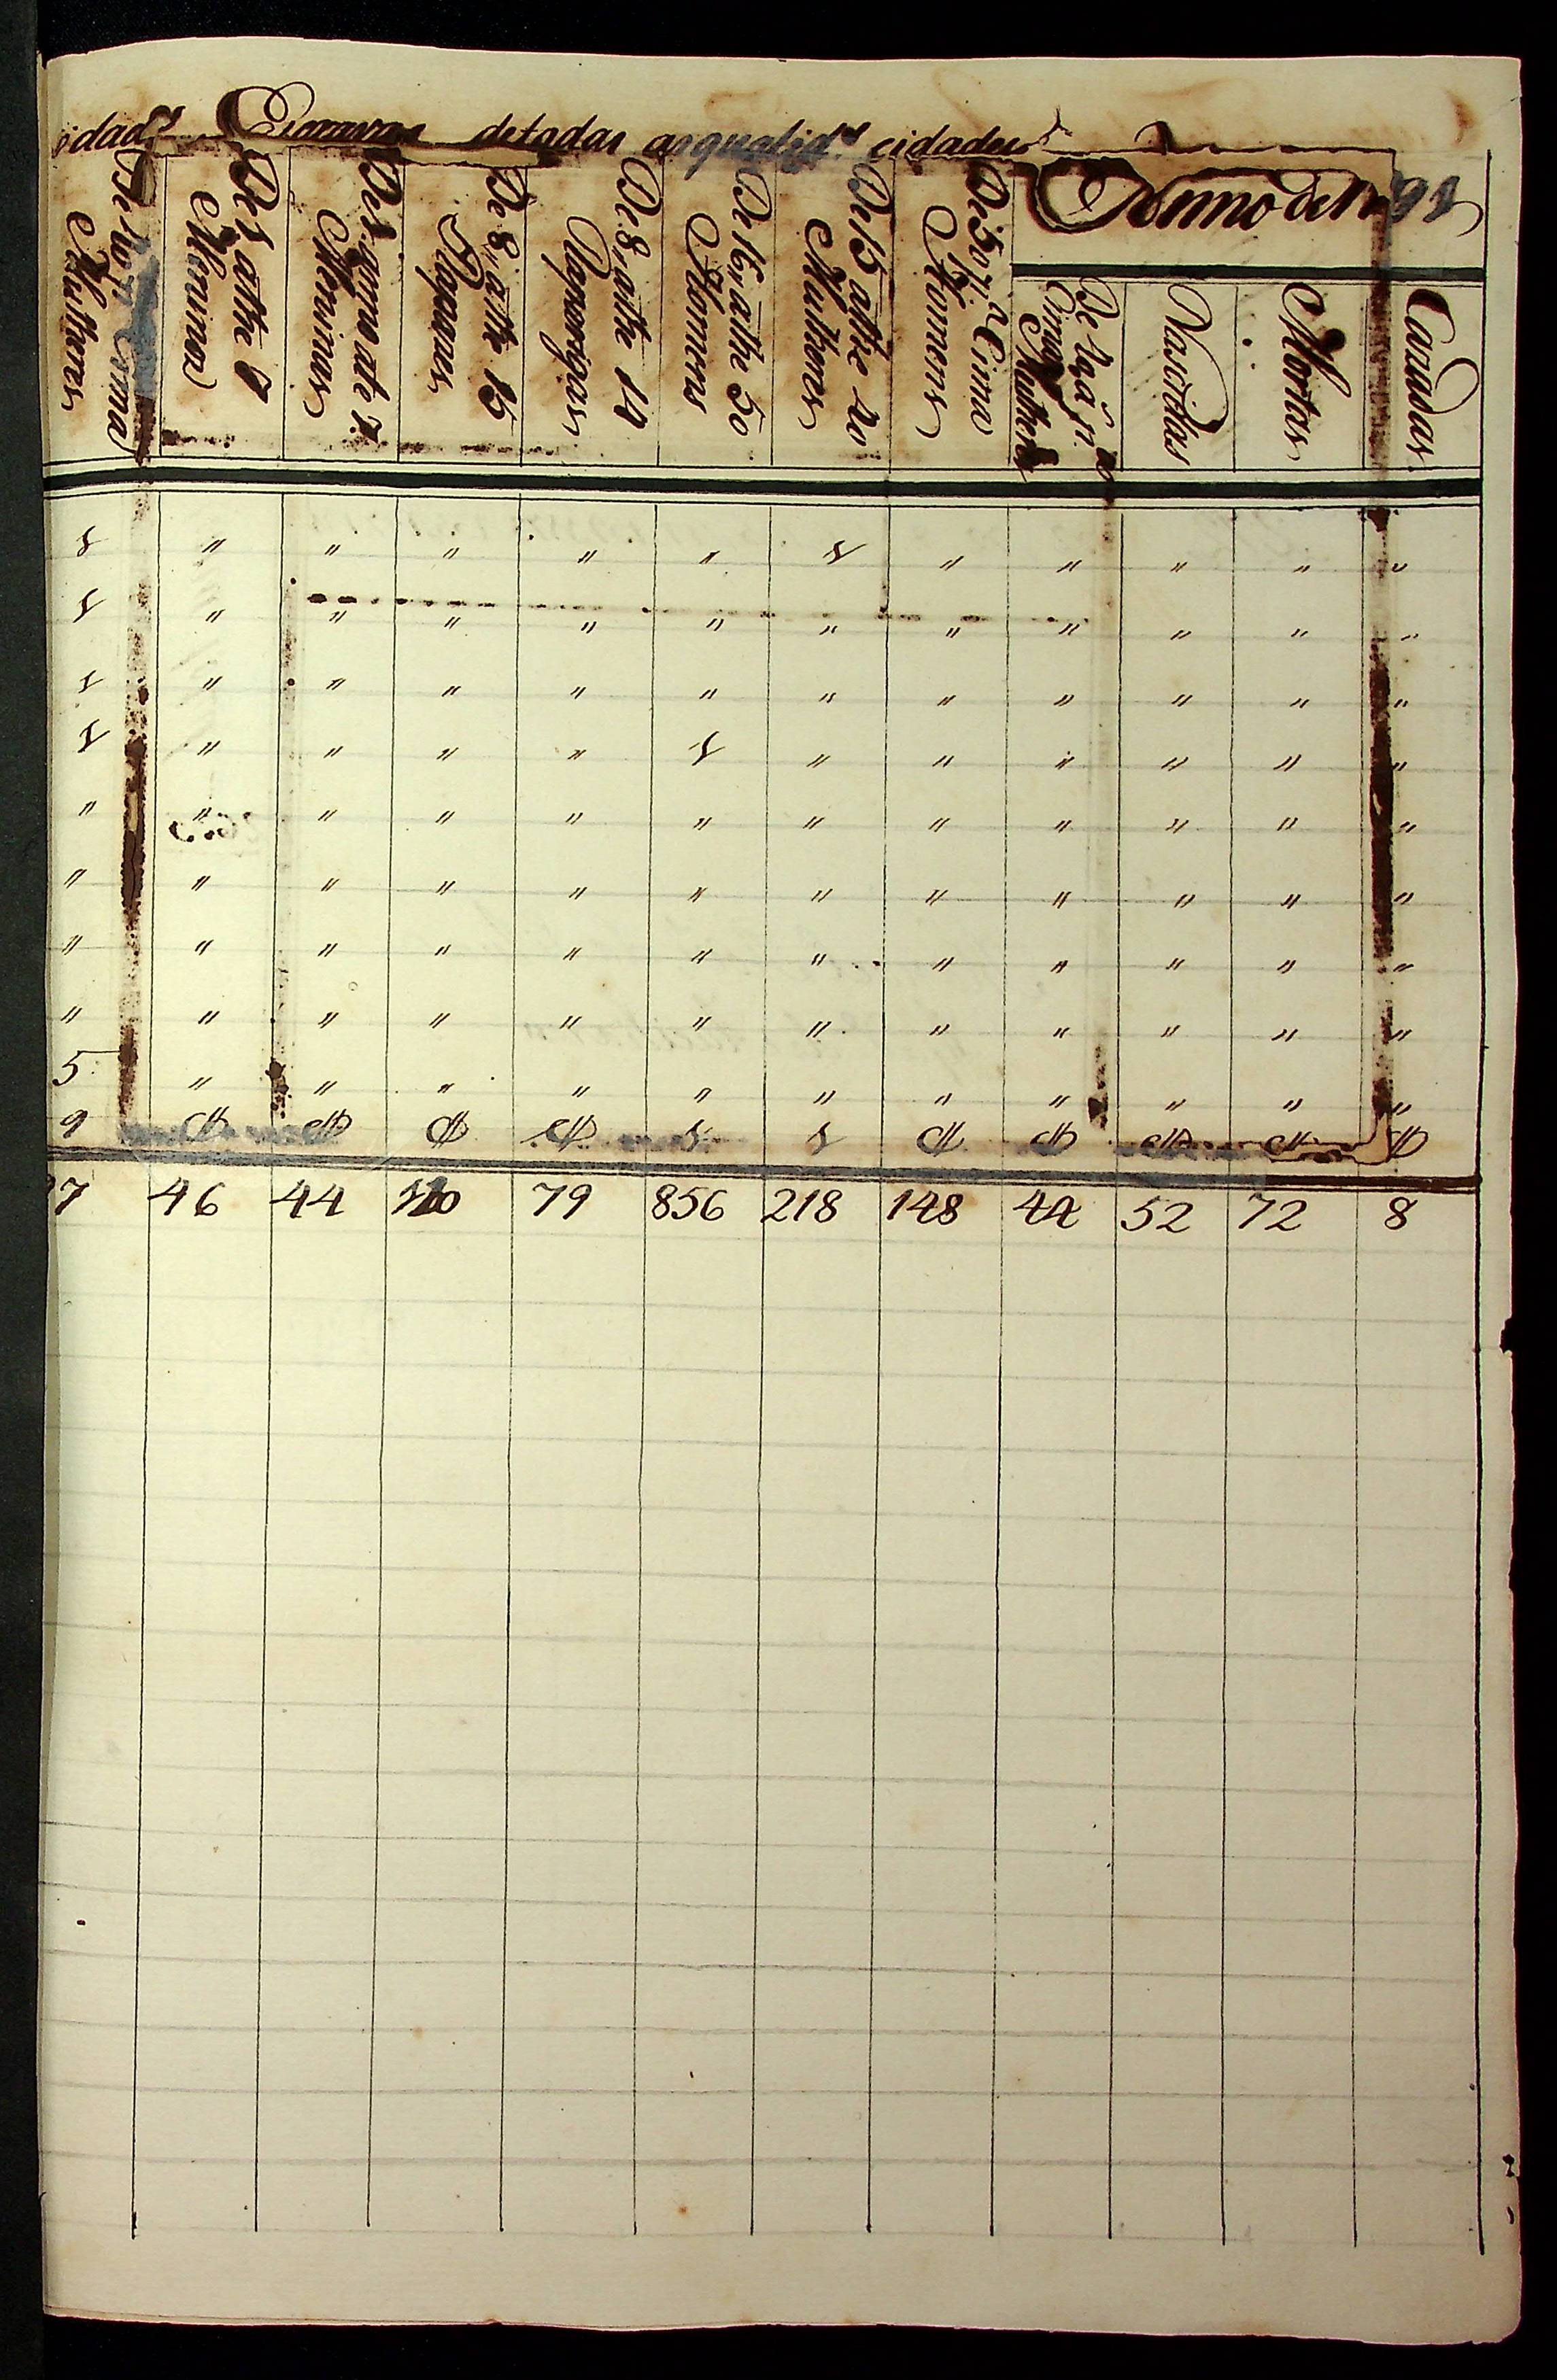 idad.s Escravos de todas as qualid.es eidades
Anno de 1798
De 40 p.a Sima Mulheres
De 1 athe 7 Meninos
De 1 anno ate 7. Meninas
De 8,, athe 15 Rapazes
De 8,, athe 14 Raparigas
De 16,, athe 50 Homens
De 15 athe 40 Mulheres
De 50 p.a Cima Homens
Cima Mulheres
Nascidos
Mortos
Cazados
1 " " " " " 1 " " " " "
1 " " " " " " " " " " "
1 " " " " " " " " " " "
1 " " " " 1 " " " " " "
" " " " " " " " " " " "
" " " " " " " " " " " "
" " " " " " " " " " " "
" " " " " " " " " " " "
5 " " " " " " " " " " "
9 1 1
7 46 44 120 79 856 218 148 44 52 72 8